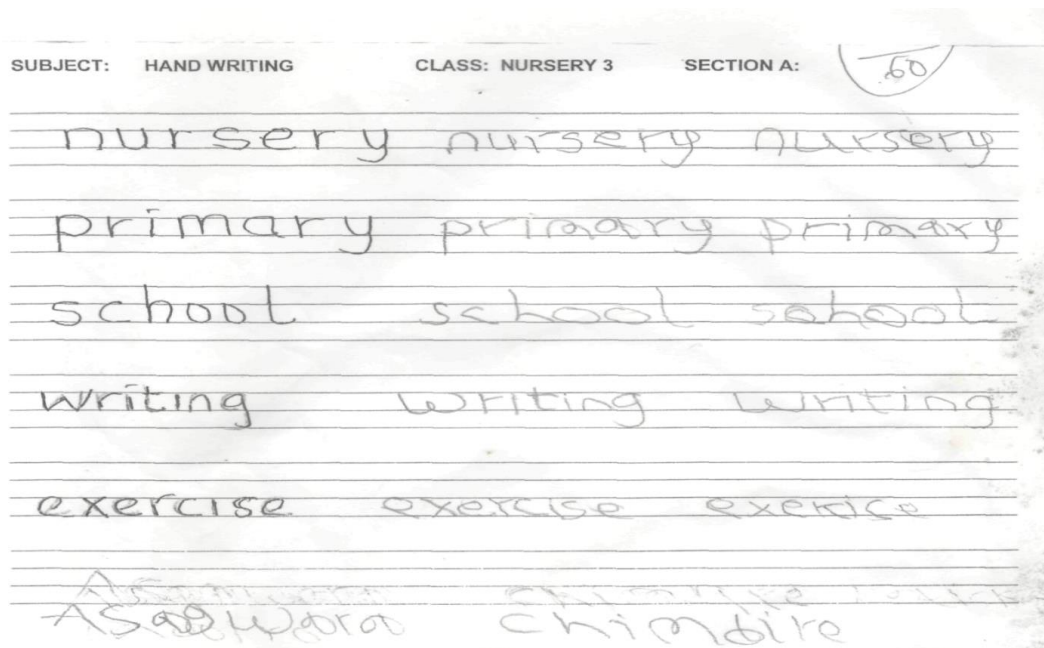 SUBJECT: HAND WRITING CLASS: NURSERY 3 SECTION A: 60
nursery nursery nursery
primary primary primary
school school school
writing writing writing
exercise exercise exerice